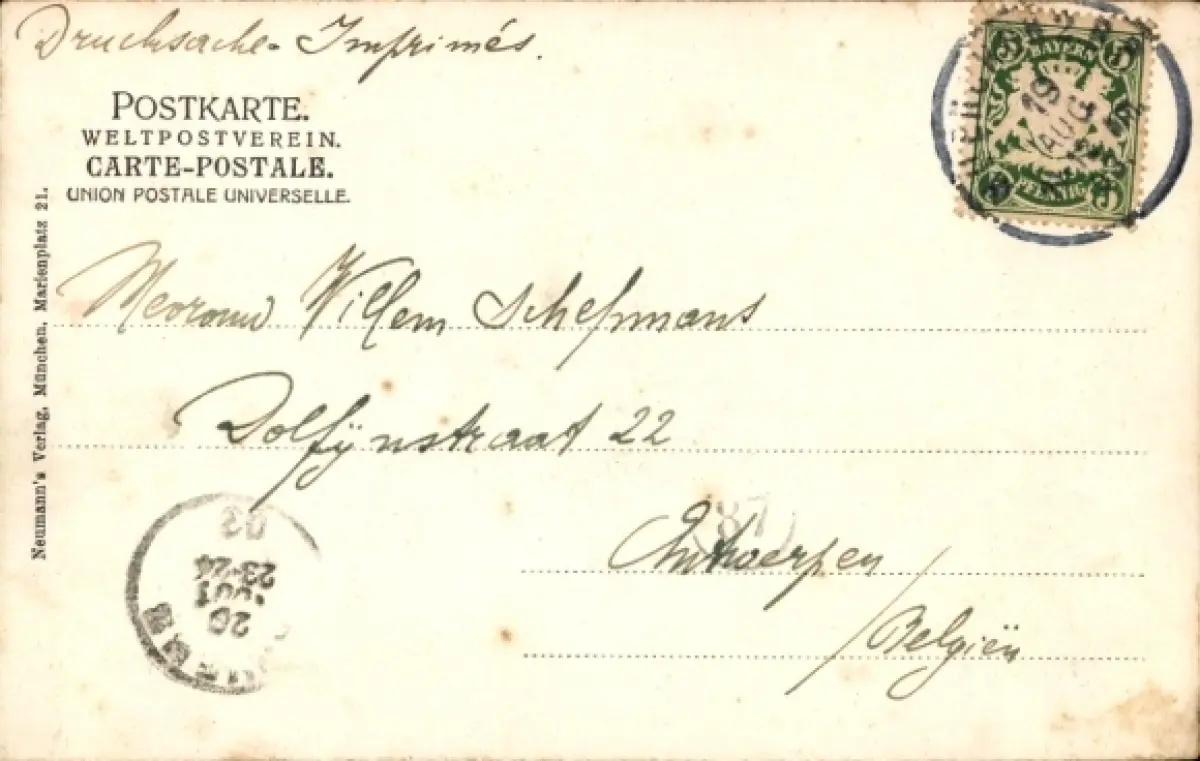 Drucksache - Imprimés.
POSTKARTE.
WELTPOSTVEREIN.
CARTE-POSTALE.
UNION POSTALE UNIVERSELLE.
BAYERN
5 5
19
AUG
PFENNIG
5 5
Neumann's Verlag, München, Marienplatz 21.
Willem
Dolfijnstraat 22
87
Antwerpen
Belgiën
03
23-24
20